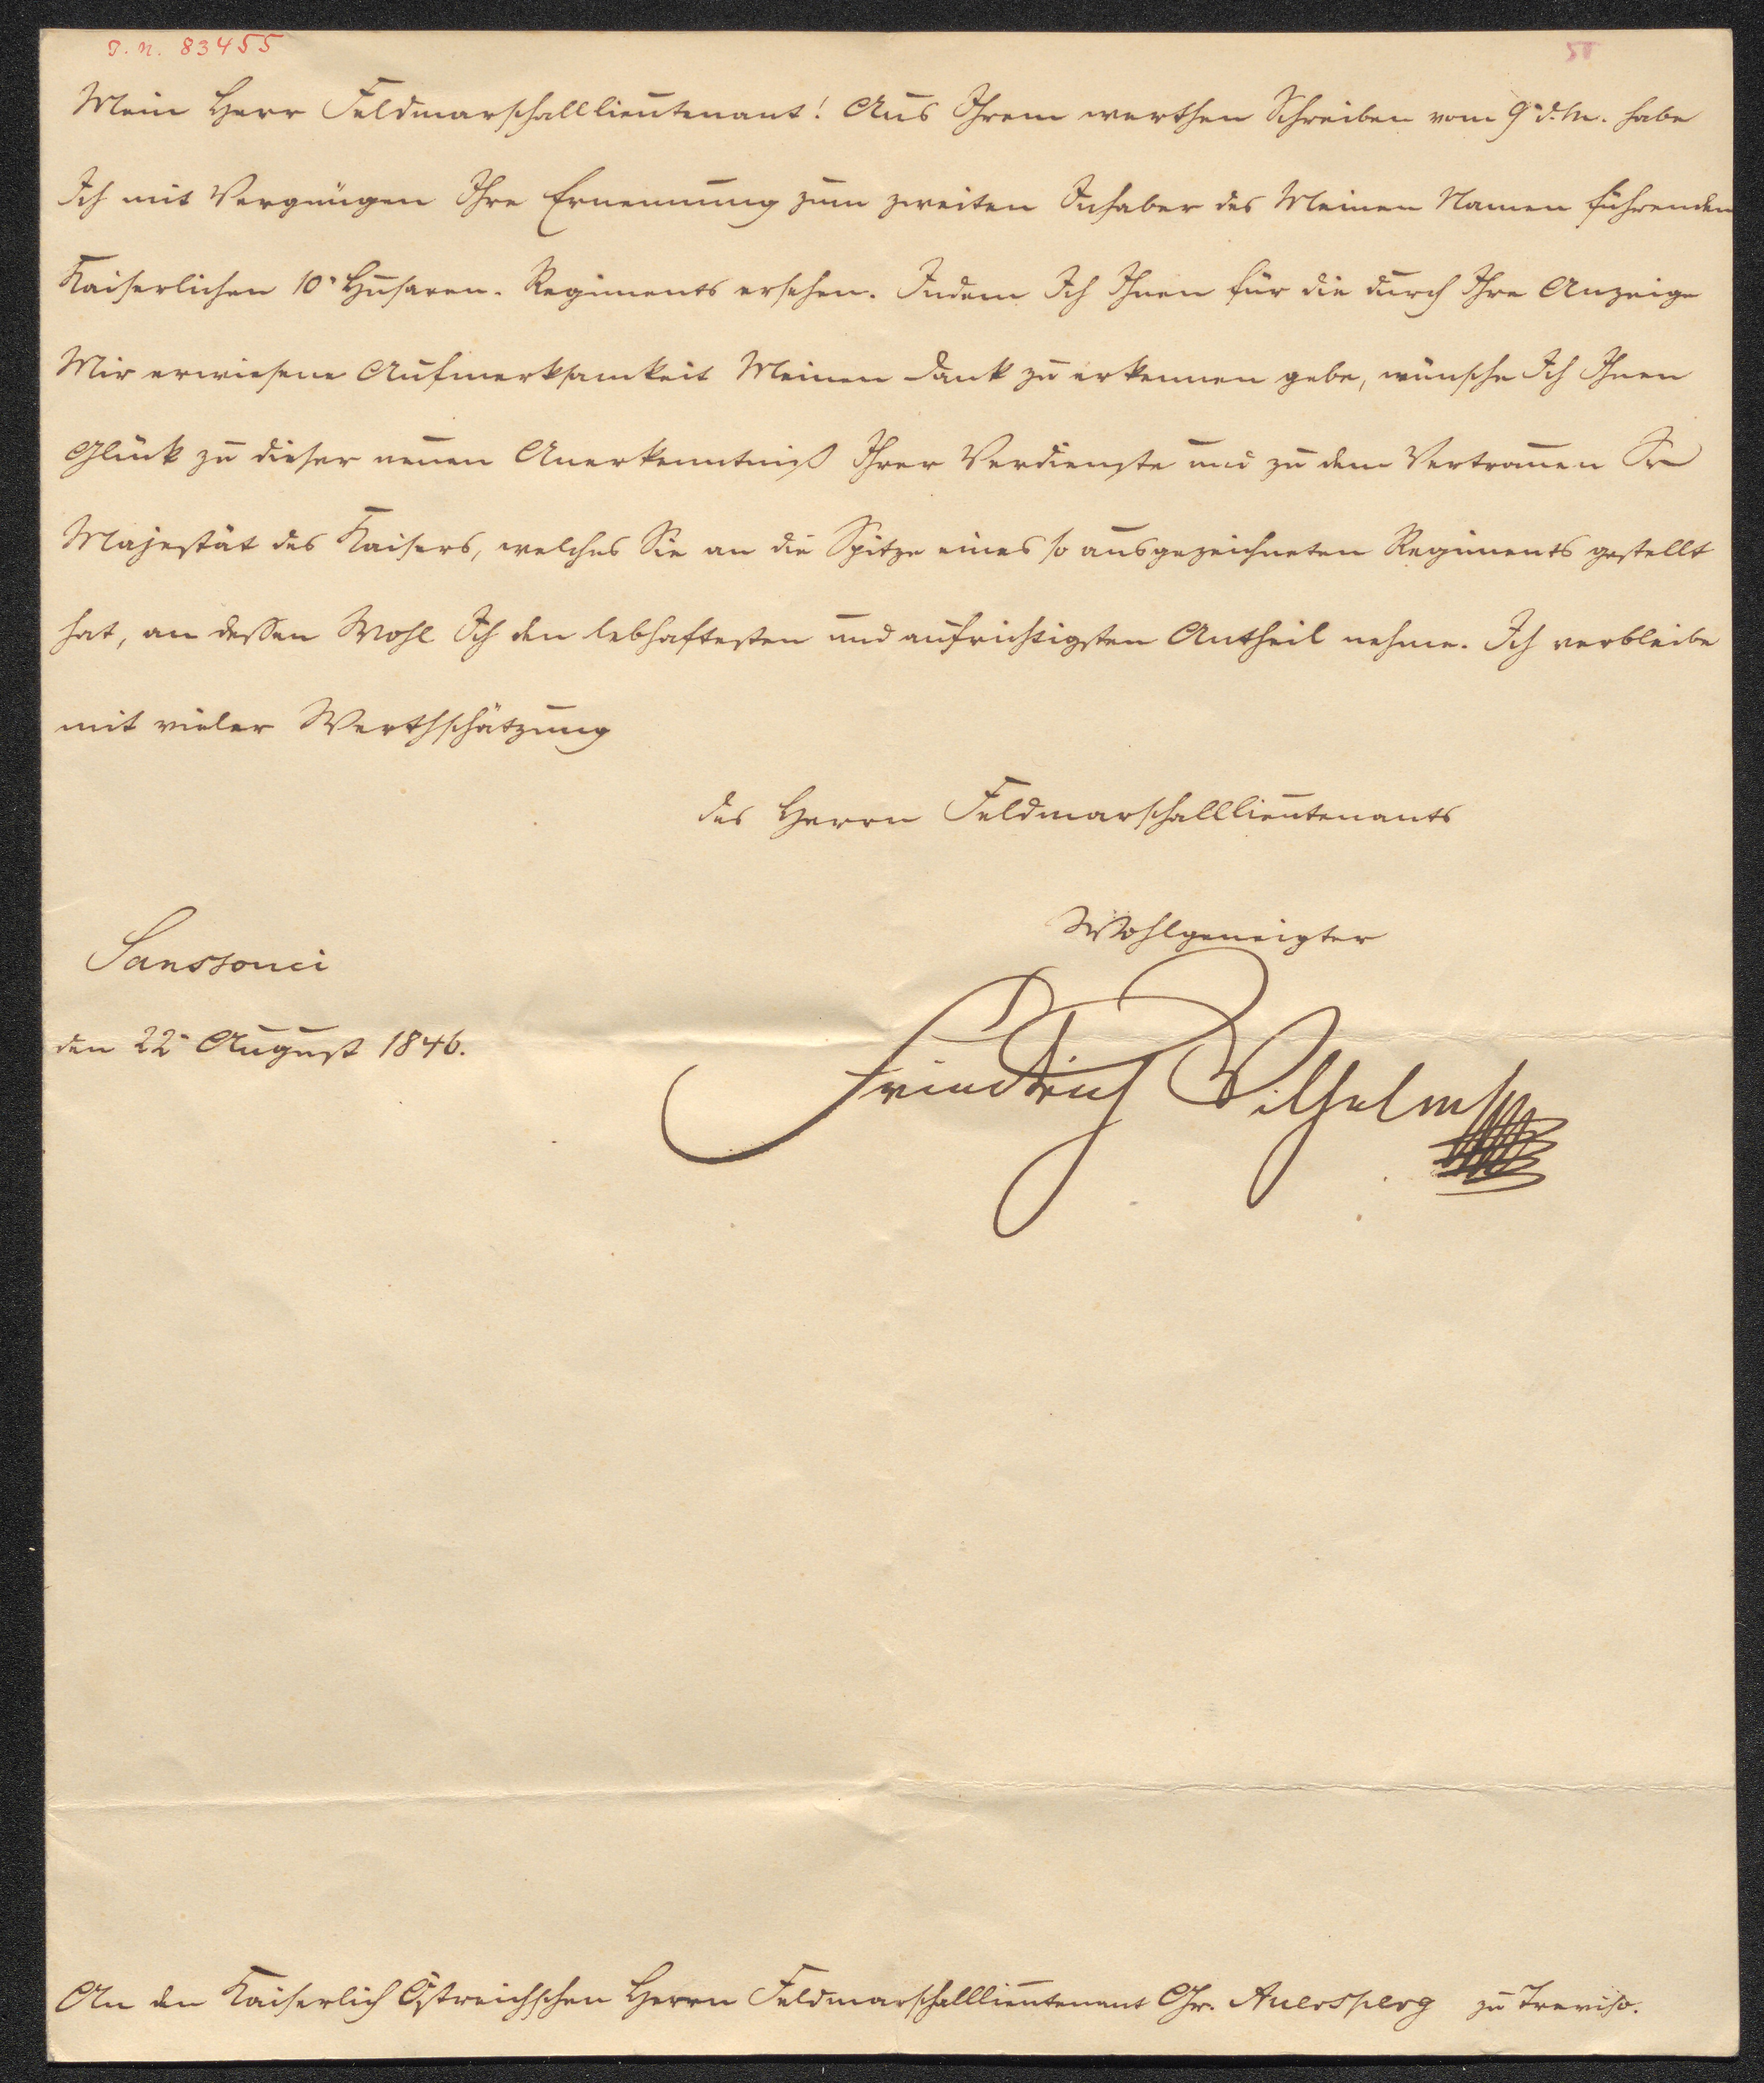 I. N. 83455
Mein Herr Feldmarschalllieutenant! Aus Ihrem werthen Schreiben vom 9n d. M. habe
Ich mit Vergnügen Ihre Ernennung zum zweiten Inhaber des Meinen Namen führenden
Kaiserlichen 10n Husaren-Regiments ersehen. Indem Ich Ihnen für die durch Ihre Anzeige
Mir erwiesene Aufmerksamkeit Meinen Dank zu erkennen gebe, wünsche Ich Ihnen
Glück zu dieser neuen Anerkenntniß Ihrer Verdienste und zu dem Vertrauen Sr
Majestät des Kaisers, welches Sie an die Spitze eines so ausgezeichneten Regiments gestellt
hat, an dessen Wohl Ich den lebhaftesten und aufrichtigsten Antheil nehme. Ich verbleibe
mit vieler Werthschätzung
des Herrn Feldmarschalllieutenants
Wohlgeneigter
Sanssouci
den 22n August 1846.
Friedrich Wilhelm
An den Kaiserlich Östreichschen Herrn Feldmarschalllieutenant Gr. Auersperg zu Treviso.